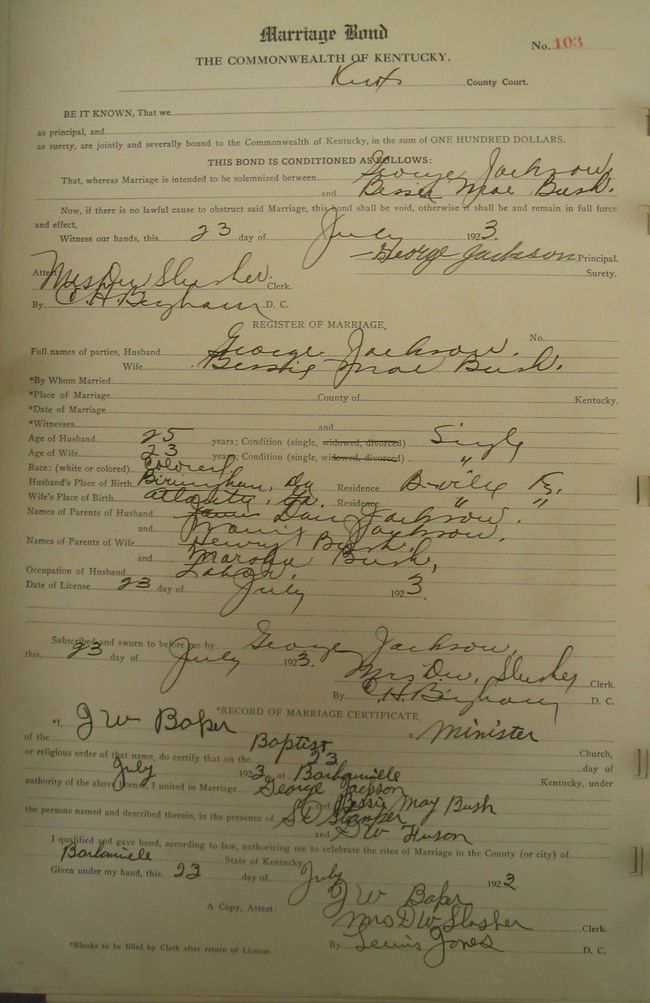 Marriage Bond
No. 103
THE COMMONWEALTH OF KENTUCKY.
County Court.
BE IT KNOWN, That we
as principal, and
as surety, are jointly and severally bound to the Commonwealth of Kentucky, in the sum of ONE HUNDRED DOLLARS.
THIS BOND IS CONDITIONED AS FOLLOWS:
That, whereas Marriage is intended to be solemnized between George Jackson
and Bessie Mae Bush.
Now, if there is no lawful cause to obstruct said Marriage, this bond shall be void, otherwise it shall be and remain in full force
and effect,
Witness our hands, this 23 day of July 1923.
George Jackson Principal.
Surety.
Attest Mrs D.W. Slusher. Clerk.
By C. H. Bingham D. C.
REGISTER OF MARRIAGE,
No.
Full names of parties, Husband George Jackson.
Wife Bessie Mae Bush.
*By Whom Married
*Place of Marriage County of Kentucky.
*Date of Marriage
*Witnesses and
Age of Husband 25 years; Condition (single, widowed, divorced) Single
Age of Wife 23 years; Condition (single, widowed, divorced) "
Race: (white or colored) Colored
Husband's Place of Birth Birmingham, Residence B-ville Ky.
Wife's Place of Birth Atlanta, Ga. Residence " "
Names of Parents of Husband Dan Jackson.
and Jackson,
Names of Parents of Wife Henry Bush,
and Bush,
Occupation of Husband Labor.
Date of License 23 day of July 1923.
Subscribed and sworn to before me by George Jackson,
this 23 day of July 1923.
Mrs D.W. Slusher Clerk.
By C. H. Bingham D. C.
*RECORD OF MARRIAGE CERTIFICATE,
*I, J W Baker a Minister
of the Baptist Church,
or religious order of that name, do certify that on the 23 day of
July 1923 at Barbourville Kentucky, under
authority of the above license, I united in Marriage George Jackson
and Bessie May Bush
the persons named and described therein, in the presence of Stamper
and Huson
I qualified and gave bond, according to law, authorizing me to celebrate the rites of Marriage in the County (or city) of
Barbourville State of Kentucky
Given under my hand, this 23 day of July 1923
J W Baker
A Copy, Attest: Mrs D W Slusher Clerk.
*Blanks to be filled by Clerk after return of License.
By Lewis Jones D. C.